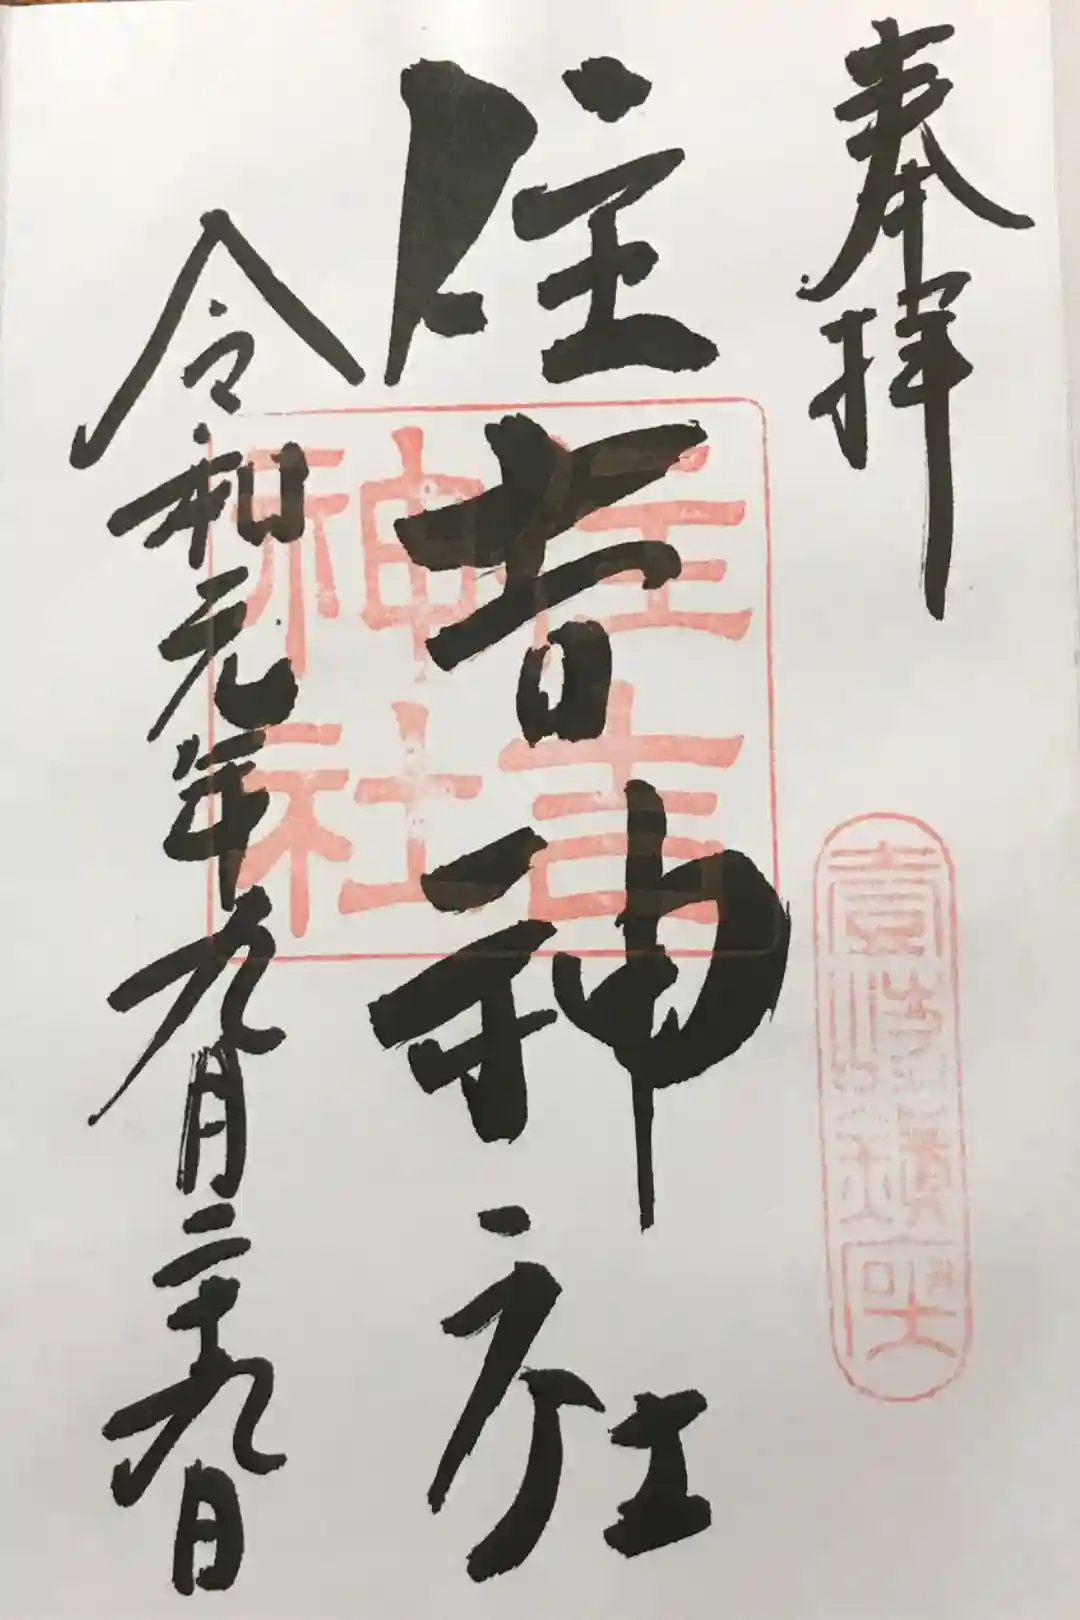 奉拝
壹岐鎮座
住吉神社
住吉
神社
令和元年九月二十九日